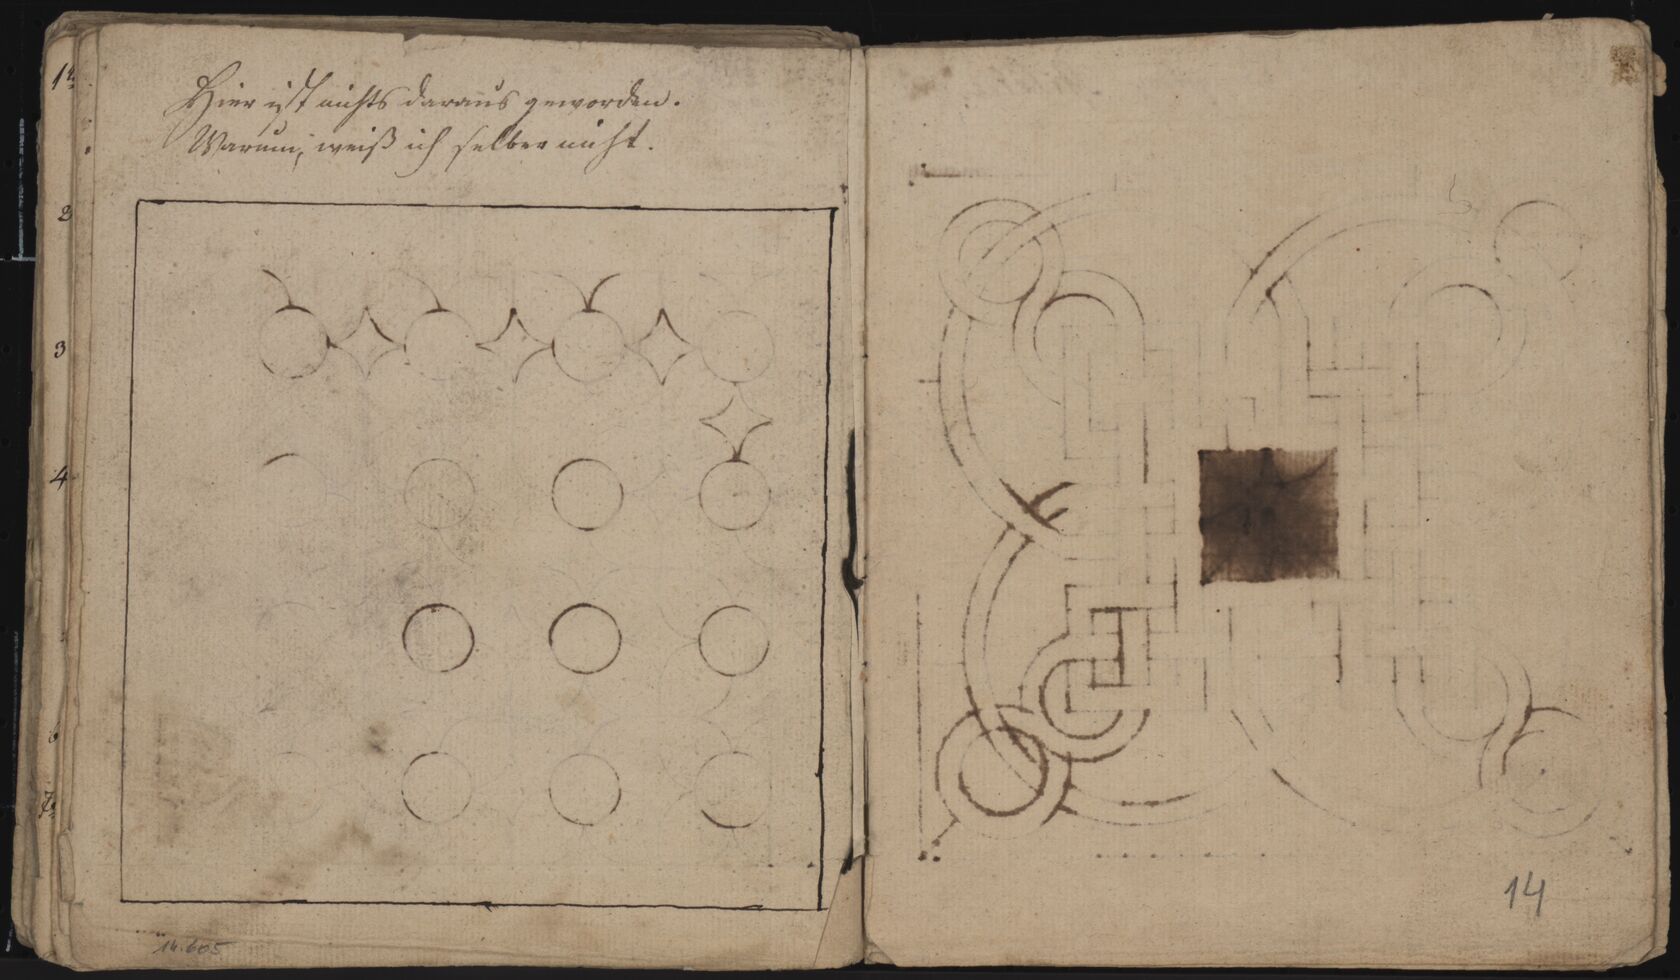 Hier ist nichts daraus geworden.
Warum, weiß ich selber nicht.
2
3
4
6
7
14.605
14